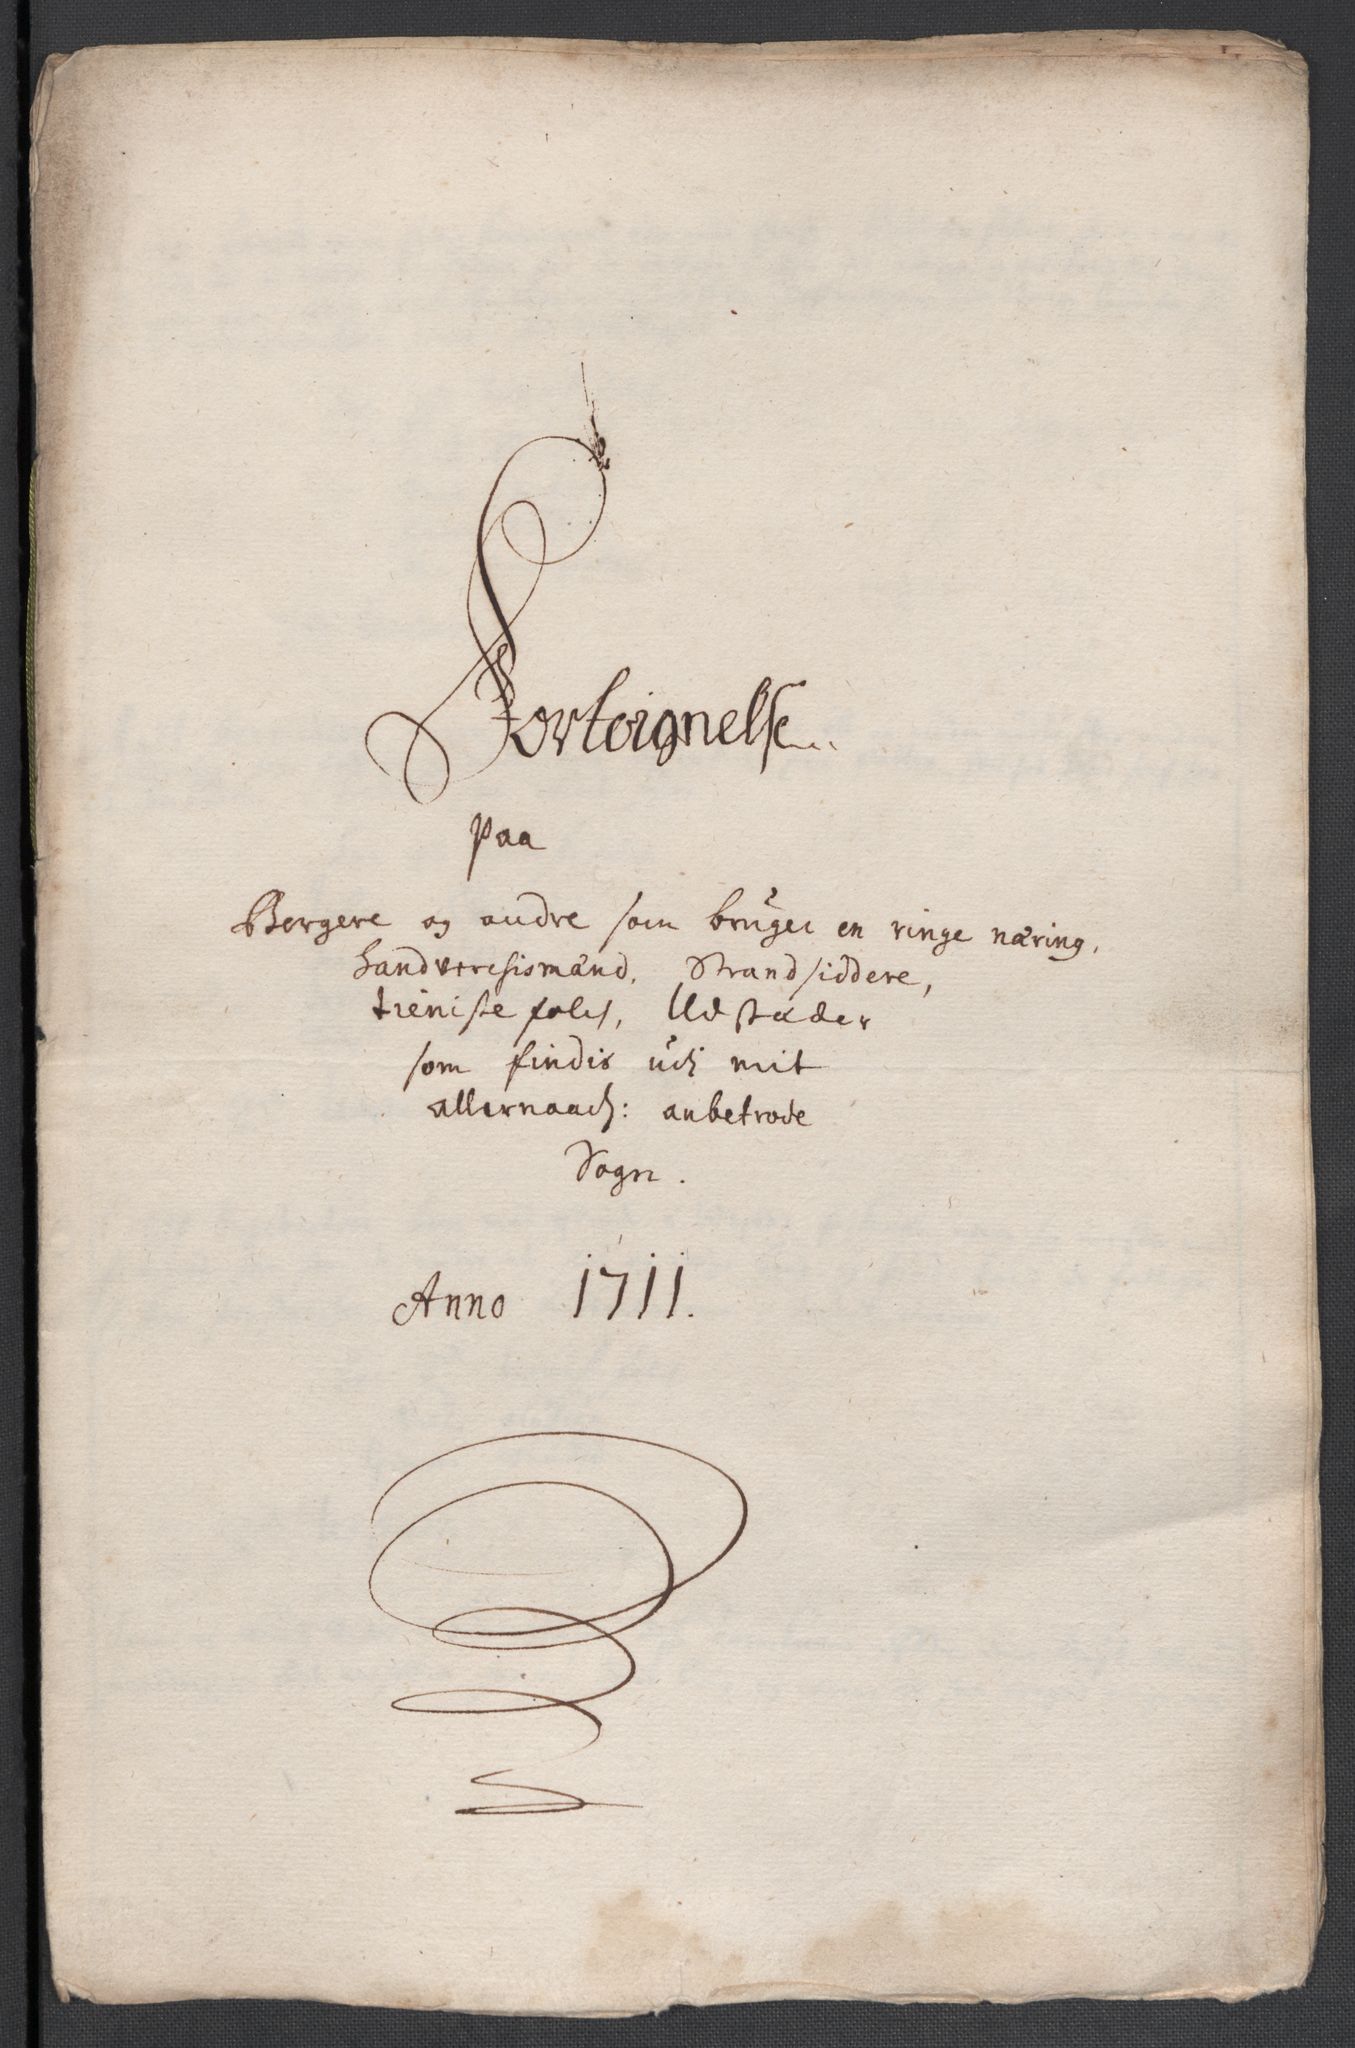 Forteignelse
paa
Borgere og andre som bruger en ringe næring,
handvercksmænd, Strandsiddere,
tieniste folch, Udstæder
som findis udj mit
allernaadh: anbetrode
Sogn.
Anno 1711.